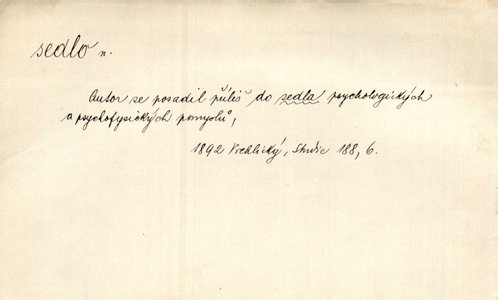 sedlo n.
Autor se posadil příliš do sedla psychologických
a psychofysických pomyslů,
1892 Vrchlický, Studie 188, 6.